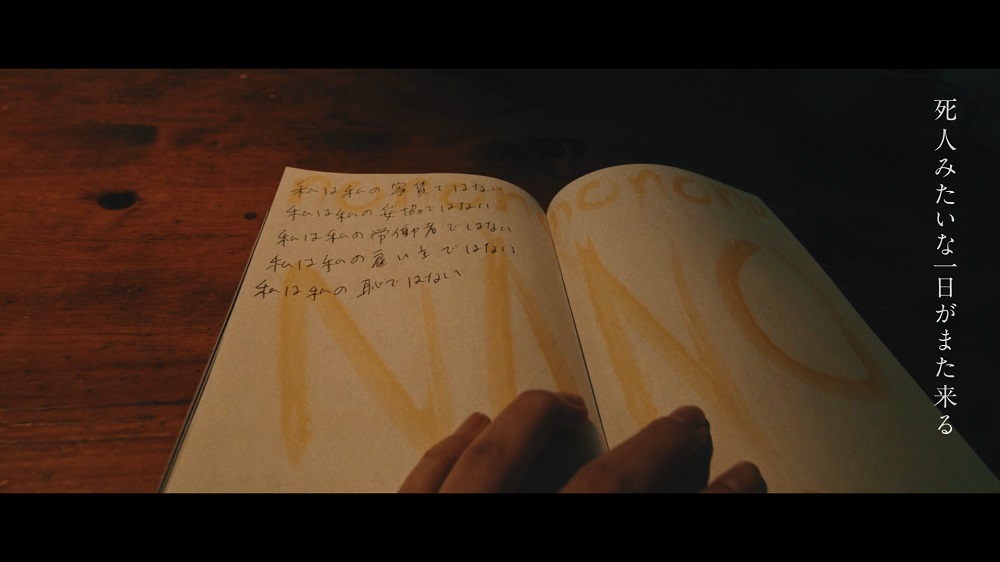 私は私の家賃ではない
私は私の妥協ではない
私は私の労働者ではない
私は私の雇い主ではない
私は私の恥ではない
nononon
nononono
NN
NO
死人みたいな一日がまた来る